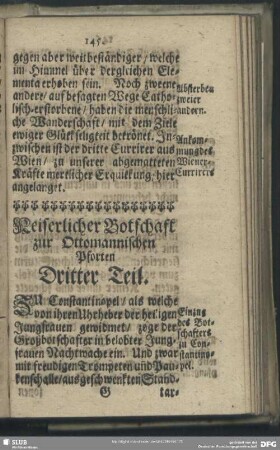 145
gegen aber weit beständiger / welche
im Himmel über dergleichen Ele-
menta erhoben sein. Noch zweene
andere / auf besagten Wege Catho-
lisch-erstorbene / haben die menschli-
che Wanderschaft / mit dem Ziele
ewiger Glükseligkeit bekrönet. In-
zwischen ist der dritte Currirer aus
Wien / zu unserer abgematteten
Kräfte merklicher Erquikung / hier
angelanget.
Absterben
zweier
andern.
Ankom-
mung des
Wiener-
Currirers
Keiserlicher Botschaft
zur Ottomannischen
Pforten
Dritter Teil.
ZU Constantinopel / als welche
von ihren Uhrheber der heiligen
Jungfrauen gewidmet / zoge der
Großbotschafter in belobter Jung-
frauen Nachtwache ein. Und zwar
mit freudigen Trompeten und Pau-
kenschalle / ausgeschwenkten Stand-
G tar-
Einzug
des Bot-
schafters
zu Con-
stantino-
pel.
SLUB
DFG